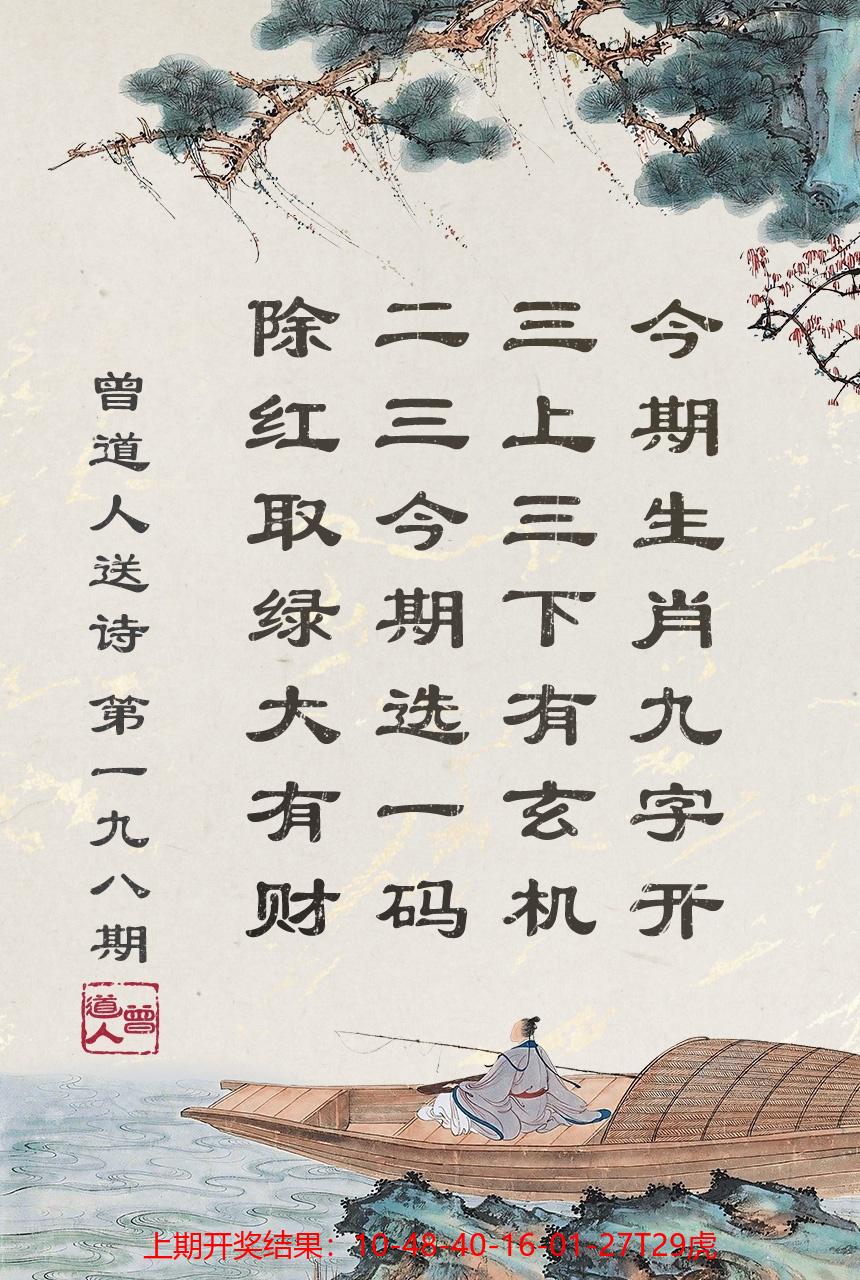 今期生肖九字开
三上三下有玄机
二三今期选一码
除红取绿大有财
曾道人送诗 第一九八期
曾道人
上期开奖结果：10-48-40-16-01-27T29虎